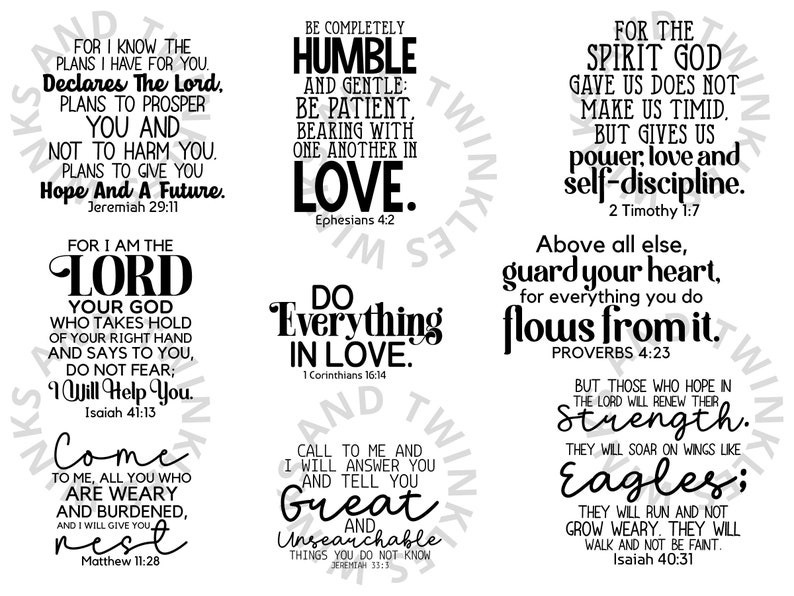 FOR I KNOW THE
PLANS I HAVE FOR YOU.
Declares The Lord,
PLANS TO PROSPER
YOU AND
NOT TO HARM YOU.
PLANS TO GIVE YOU
Hope And A Future.
Jeremiah 29:11
BE COMPLETELY
HUMBLE
AND GENTLE;
BE PATIENT,
BEARING WITH
ONE ANOTHER IN
LOVE.
Ephesians 4:2
FOR THE
SPIRIT GOD
GAVE US DOES NOT
MAKE US TIMID,
BUT GIVES US
power, love and
self-discipline.
2 Timothy 1:7
FOR I AM THE
LORD
YOUR GOD
WHO TAKES HOLD
OF YOUR RIGHT HAND
AND SAYS TO YOU,
DO NOT FEAR;
I Will Help You.
Isaiah 41:13
DO
Everything
IN LOVE.
1 Corinthians 16:14
Above all else,
guard your heart,
for everything you do
flows from it.
PROVERBS 4:23
Come
TO ME, ALL YOU WHO
ARE WEARY
AND BURDENED,
AND I WILL GIVE YOU
rest
Matthew 11:28
CALL TO ME AND
I WILL ANSWER YOU
AND TELL YOU
Great
AND
Unsearchable
THINGS YOU DO NOT KNOW
JEREMIAH 33:3
BUT THOSE WHO HOPE IN
THE LORD WILL RENEW THEIR
Strength.
THEY WILL SOAR ON WINGS LIKE
Eagles;
THEY WILL RUN AND NOT
GROW WEARY. THEY WILL
WALK AND NOT BE FAINT.
Isaiah 40:31
WINKS AND TWINKLES
WINKS AND TWINKLES
WINKS AND TWINKLES
WINKS AND TWINKLES
WINKS AND TWINKLES
WINKS AND TWINKLES